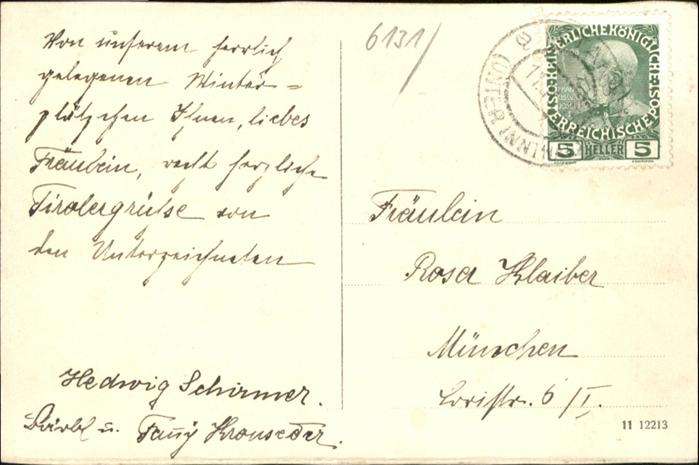 Von unserem herrlich
gelegenen Winter=
plätzchen Ihnen, liebes
Fräulein, recht herzliche
Tirolergrüße von
den Unterzeichneten
Hedwig Schirmer.
Bärbl u. Fanÿ Kronseder.
6131/
KAISERLICHE KÖNIGLICHE
ÖSTERREICHISCHE POST
5 HELLER 5
(UNTERINNTAL)
Fräulein
Rosa Klaiber
München
Loristr. 6/I.
11 12213